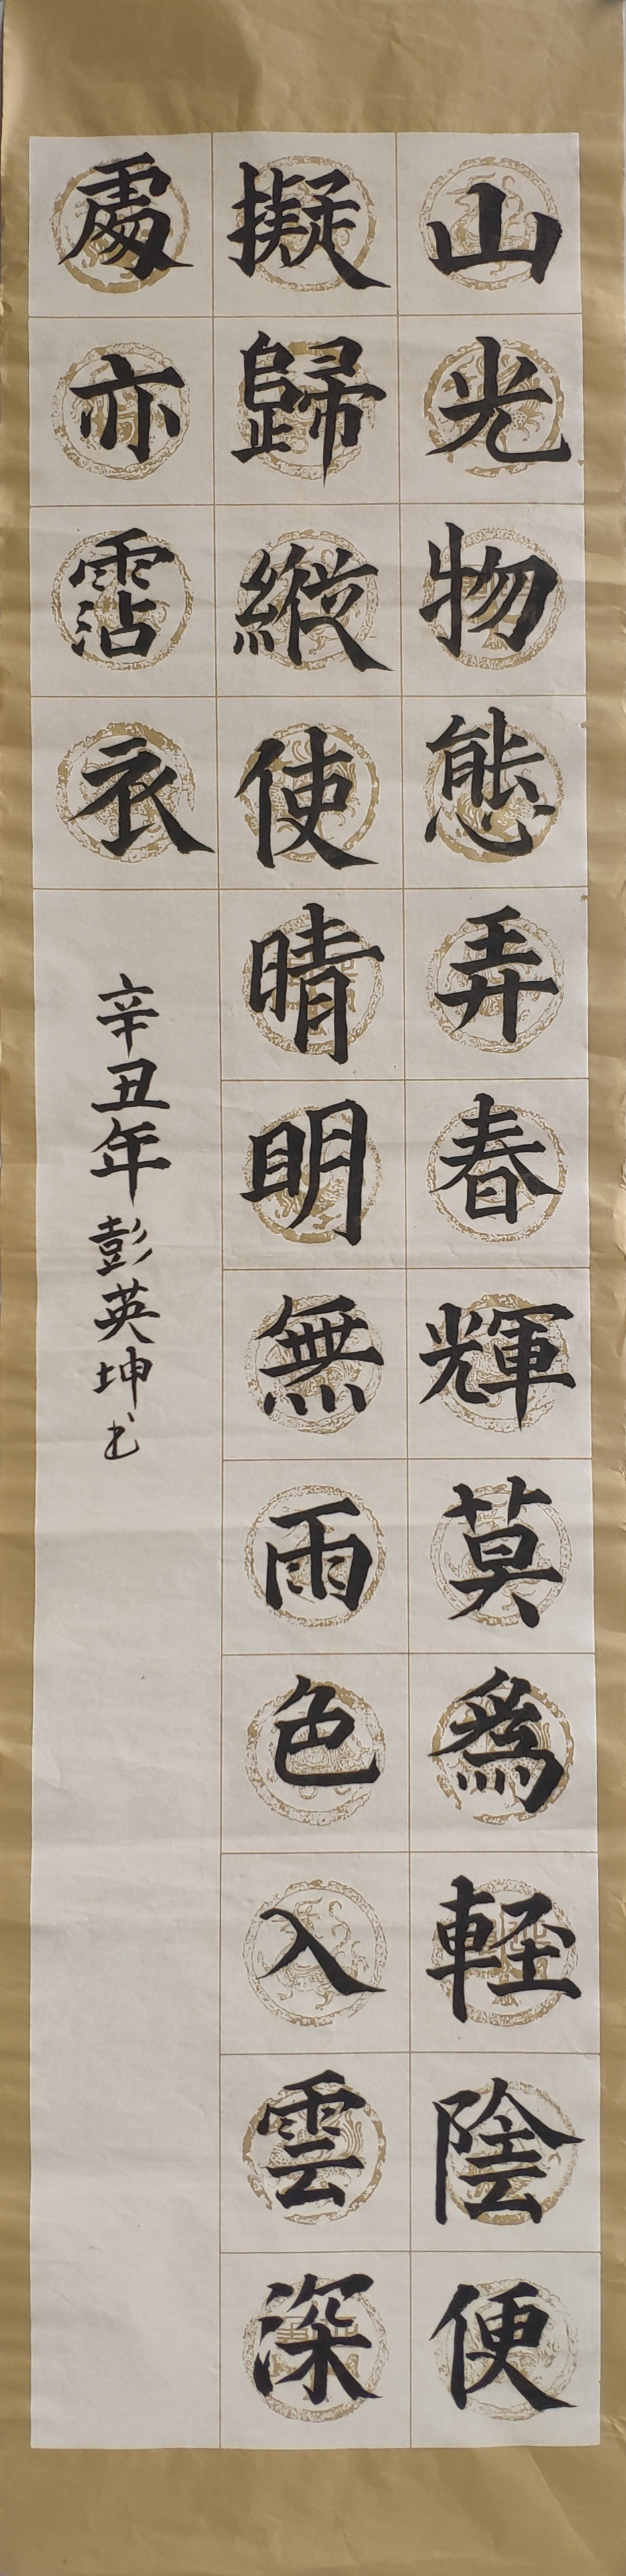 山光物態弄春輝莫為輕陰便
擬歸縱使晴明無雨色入雲深
處亦霑衣
辛丑年彭英坤书